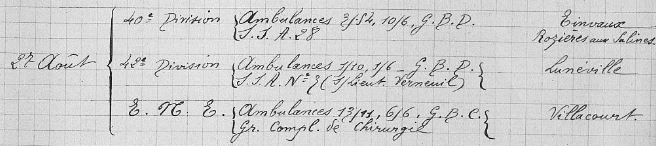 40e Division Ambulances 2/54, 10/6, G.B.D. Einvaux
S.S.A. 28 Rozières aux Salines.
27 Août 42e Division Ambulances 1/10, 1/6 - G.B.D. Lunéville
S.S.A. No (S/Lieut. Verneuil)
E.N.E. Ambulances 13/11, 6/6, G.B.C. Villacourt.
Gr. Compl. de Chirurgie